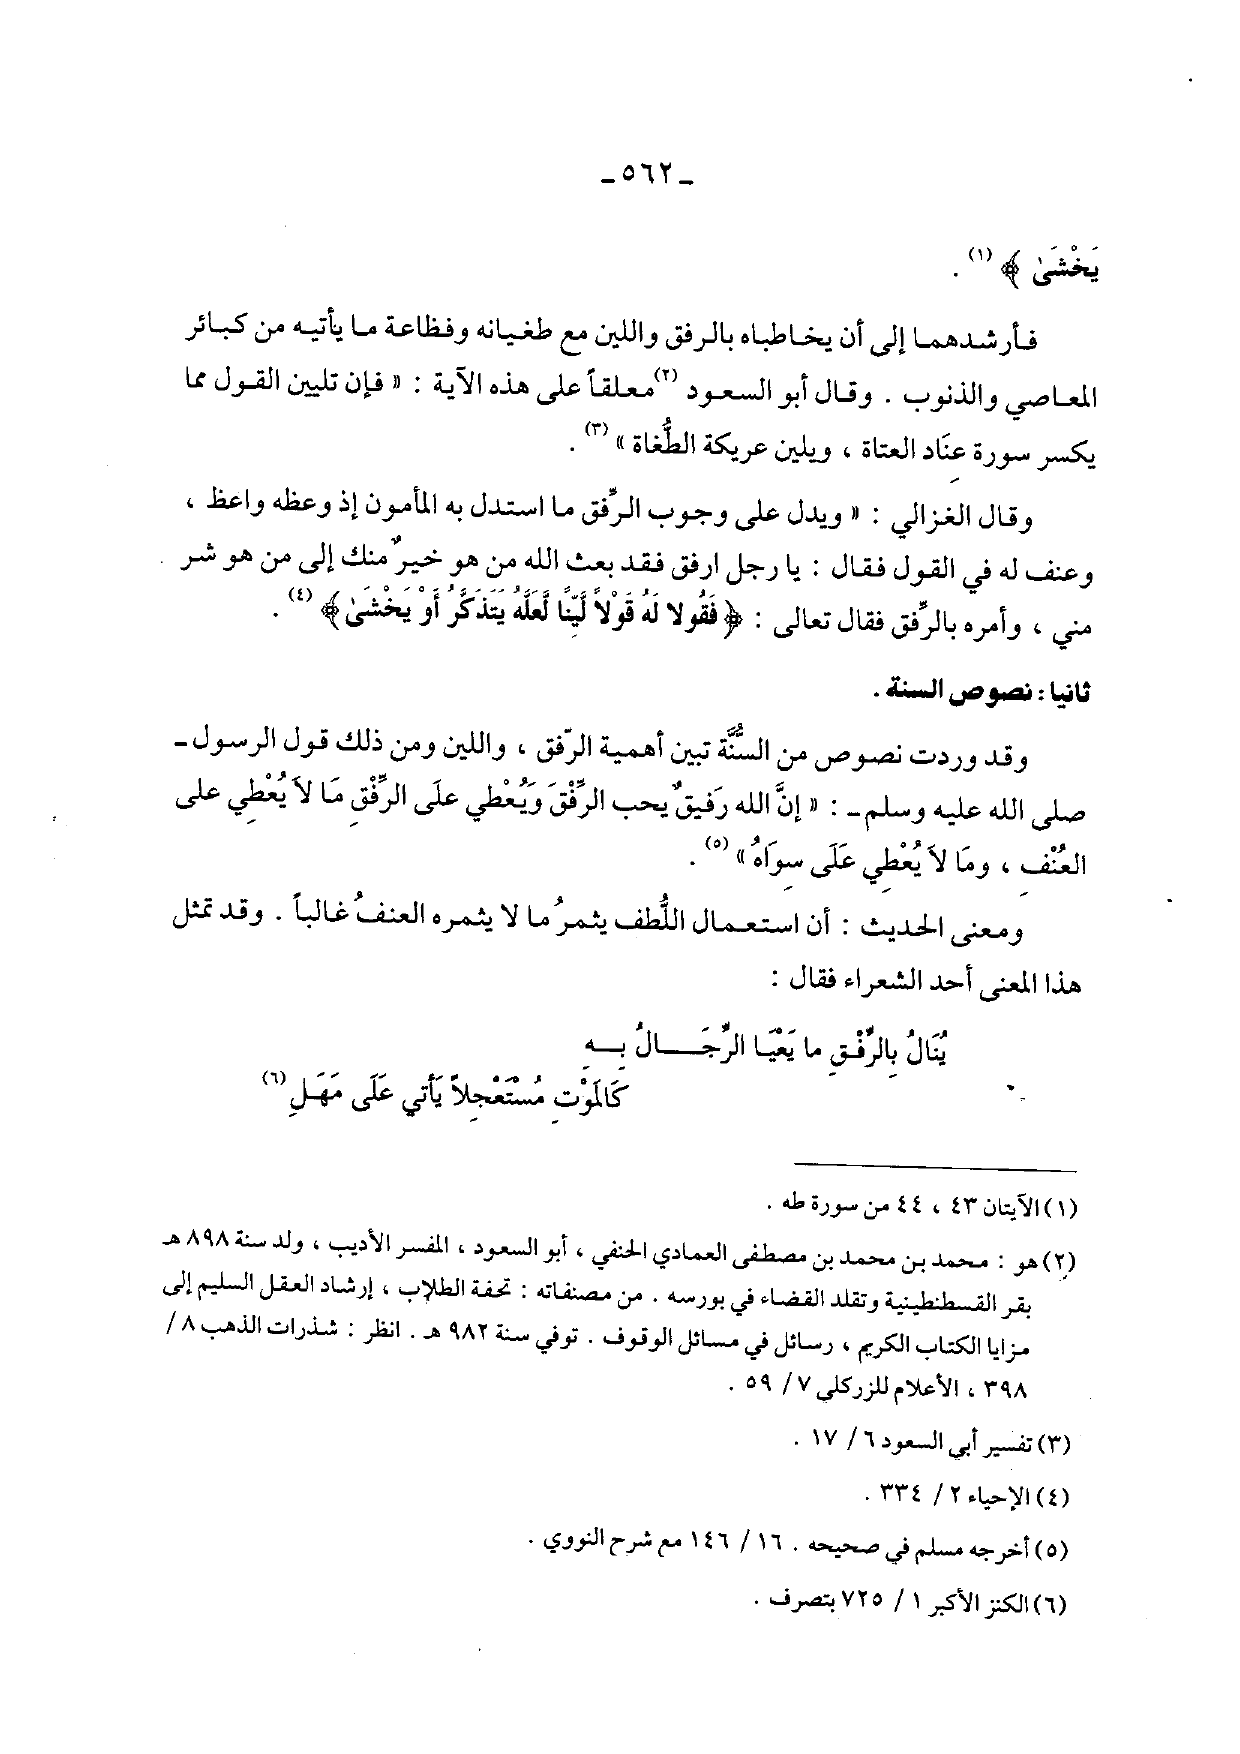 ـ ٥٦٢ ـ
يَخْشَىٰ ﴾ (١) .
فأرشدهما إلى أن يخاطباه بالرفق واللين مع طغيانه وفظاعة ما يأتيه من كبائر
المعاصي والذنوب . وقال أبو السعود (٢) معلقاً على هذه الآية : « فإن تليين القول مما
يكسر سورة عِنَاد العتاة ، ويلين عريكة الطُّغاة » (٣) .
وقال الغزالي : « ويدل على وجوب الرِّفق ما استدل به المأمون إذ وعظه واعظ ،
وعنف له في القول فقال : يا رجل ارفق فقد بعث الله من هو خيرٌ منك إلى من هو شر
مني ، وأمره بالرِّفق فقال تعالى : ﴿ فَقُولا لَهُ قَوْلاً لَّيِّنًا لَّعَلَّهُ يَتَذَكَّرُ أَوْ يَخْشَىٰ ﴾ (٤) .
ثانيا : نصوص السنة .
وقد وردت نصوص من السُّنَّة تبين أهمية الرِّفق ، واللين ومن ذلك قول الرسول ـ
صلى الله عليه وسلم ـ : « إنَّ الله رَفيقٌ يحب الرِّفْقَ وَيُعْطي علَى الرِّفْقِ مَا لاَ يُعْطِي على
العُنْفِ ، ومَا لاَ يُعْطِي عَلَى سِوَاهُ » (٥) .
ومعنى الحديث : أن استعمال اللُّطف يثمرُ ما لا يثمره العنفُ غالباً . وقد تمثل
هذا المعنى أحد الشعراء فقال :
يُنَالُ بِالرِّفْقِ ما يَعْيَا الرِّجَـــالُ بِـــهِ
كَالمَوْتِ مُسْتَعْجِلاً يَأتي عَلَى مَهَلِ (٦)
(١) الآيتان ٤٣ ، ٤٤ من سورة طه .
(٢) هو : محمد بن محمد بن مصطفى العمادي الحنفي ، أبو السعود ، المفسر الأديب ، ولد سنة ٨٩٨ هـ
بقر القسطنطينية وتقلد القضاء في بورسه . من مصنفاته : تحفة الطلاب ، إرشاد العقل السليم إلى
مزايا الكتاب الكريم ، رسائل في مسائل الوقوف . توفي سنة ٩٨٢ هـ . انظر : شذرات الذهب ٨ /
٣٩٨ ، الأعلام للزركلى ٧ / ٥٩ .
(٣) تفسير أبي السعود ٦ / ١٧ .
(٤) الإحياء ٢ / ٣٣٤ .
(٥) أخرجه مسلم في صحيحه . ١٦ / ١٤٦ مع شرح النووي .
(٦) الكنز الأكبر ١ / ٧٢٥ بتصرف .